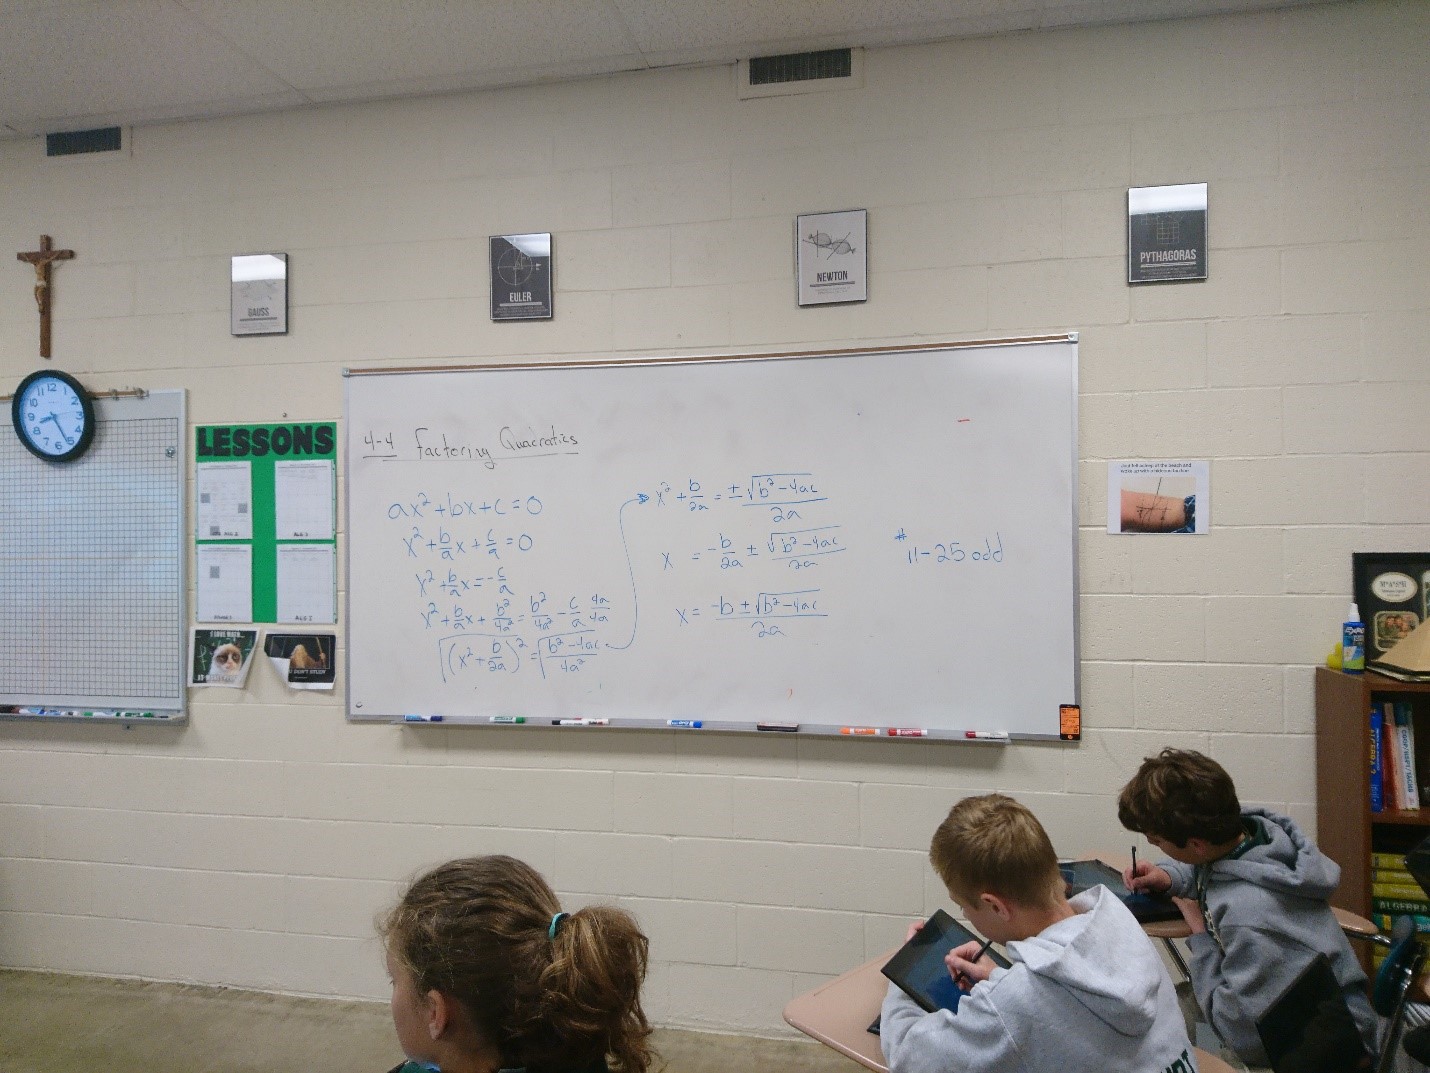 GAUSS
EULER
NEWTON
PYTHAGORAS
LESSONS
4-4 Factoring Quadratics
ax² + bx + c = 0
x² + b/a x + c/a = 0
x² + b/a x = -c/a
x² + b/a x + b²/4a² = b²/4a² - c/a 4a/4a
√(x² + b/2a)² = √(b²-4ac)/4a²
x² + b/2a = ±√(b²-4ac)/2a
x = -b/2a ± √(b²-4ac)/2a
x = -b±√(b²-4ac)/2a
# 11-25 odd
12
1
2
3
4
5
6
7
8
9
10
11
I LOVE MATH...
ALGEBRA